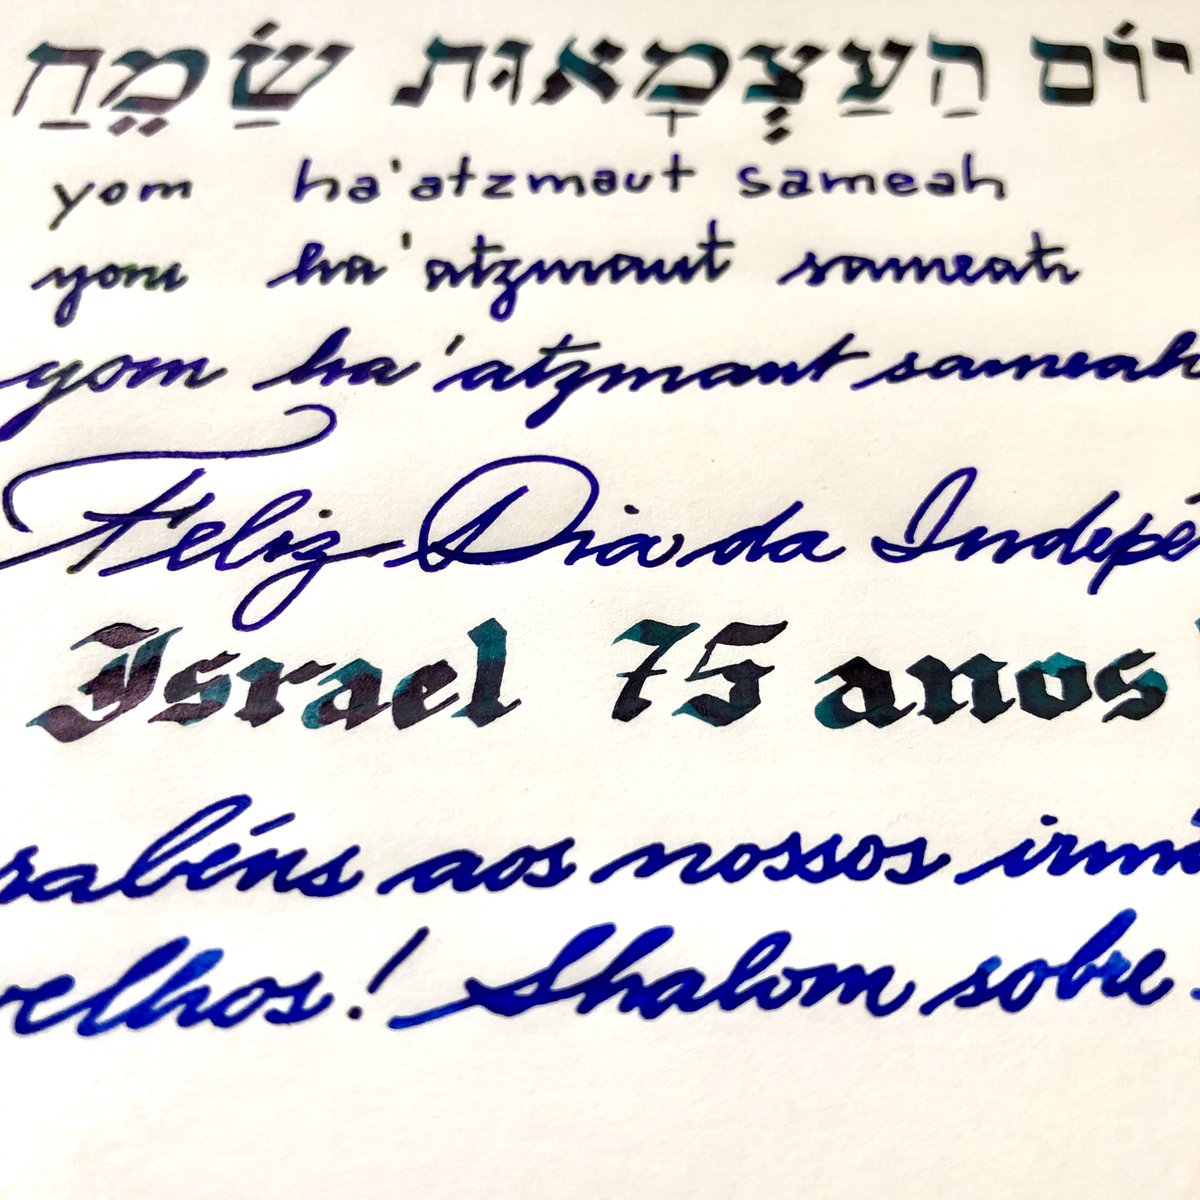 יוֹם הַעַצְמָאוּת שַׂמֵחַ
yom ha'atzmaut sameah
yom ha'atzmaut sameah
yom ha'atzmaut sameah
Feliz Dia da Indepê
Israel 75 anos
rabéns aos nossos irmã
velhos! Shalom sobre